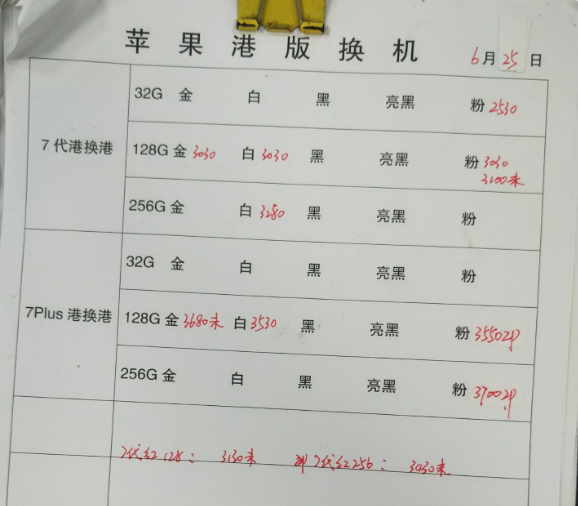 苹果港版换机
6月25日
7代港换港
32G 金 白 黑 亮黑 粉 2530
128G 金 3030 白 3030 黑 亮黑 粉 3030
3100未
256G 金 白 3280 黑 亮黑 粉
7Plus 港换港
32G 金 白 黑 亮黑 粉
128G 金 3680未 白 3530 黑 亮黑 粉 3550
256G 金 白 黑 亮黑 粉 3700
7代红128： 3130未 7代红256： 3430未